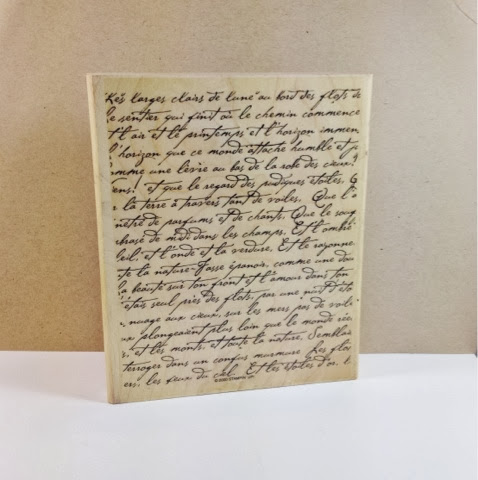 les larges clairs de lune au bord des flots de
le sentier qui finit où le chemin commence
et l'air et le printemps et l'horizon immen
l'horizon que ce monde attache humble et je
omme une lèvre au bas de la robe des cieux!
iens! et que le regard des pudiques étoiles, Q
r la terre à travers tant de voiles, Que l'a
nètre de parfums et de chants, Que le souf
chose de midi dans les champs, Et l'ombre
leil, et l'onde et la verdure, Et le rayonne
te la nature Fasse épanoir, comme une dou
la beauté sur ton front et l'amour dans ton
'étais seul près des flots, par une nuit d'éto
nuage aux cieux, sur les mers pas de voile
ux plongeaient plus loin que le monde rée
s, et les monts, et toute la nature, Semblaie
terroger dans un confus murmure Les flot
ers, les feux du ciel. Et les étoiles d'or, l
© 2002 STAMPIN' UP!